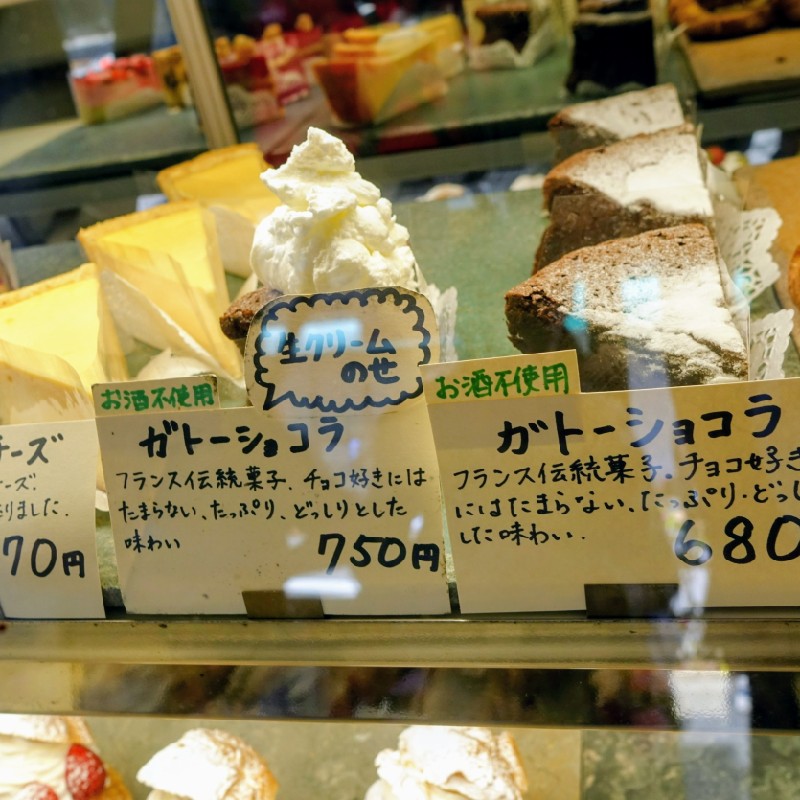 チーズ
ーズ.
りました.
70円
お酒不使用
生クリーム
のせ
ガトーショコラ
フランス伝統菓子、チョコ好きには
たまらない、たっぷり、どっしりとした
味わい
750円
お酒不使用
ガトーショコラ
フランス伝統菓子。チョコ好き
にはたまらない、たっぷり・どっし
した味わい.
680